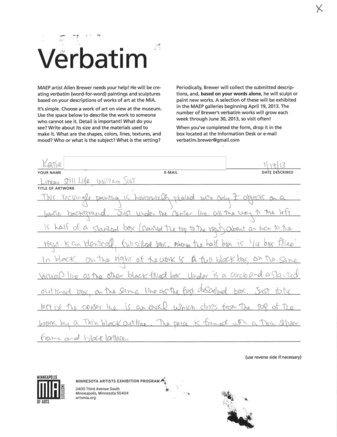 Verbatim
MAEP artist Allen Brewer needs your help! He will be cre-
ating verbatim (word-for-word) paintings and sculptures
based on your descriptions of works of art at the MIA.
It's simple. Choose a work of art on view at the museum.
Use the space below to describe the work to someone
who cannot see it. Detail is important! What do you
see? Write about its size and the materials used to
make it. What are the shapes, colors, lines, textures, and
mood? Who or what is the subject? What is the setting?
Periodically, Brewer will collect the submitted descrip-
tions, and, based on your words alone, he will sculpt or
paint new works. A selection of these will be exhibited
in the MAEP galleries beginning April 19, 2013. The
number of Brewer's verbatim works will grow each
week through June 30, 2013, so visit often!
When you've completed the form, drop it in the
box located at the Information Desk or e-mail
verbatim.brewer@gmail.com
Katie
YOUR NAME E-MAIL DATE DESCRIBED
Linear Still Life, William Saltzman
TITLE OF ARTWORK
This rectangle painting is horizontally placed with only 7 objects on a
background. Just under the center line all the way to the left
is half of a slanted box
right is an identical, full sized box. Above the half box is
in black. On the right of the work is a thin black box, on the same
line as the other black box. Under is a
outlined box, on the same line as the first described box. Just to the
left of the center line is an oval which drops from the top of the
work by a thin black outline. The piece is framed with a thin silver
frame and black
(use reverse side if necessary)
MINNEAPOLIS
MIA
INSTITUTE
OF ARTS
MINNESOTA ARTISTS EXHIBITION PROGRAM
2400 Third Avenue South
Minneapolis, Minnesota 55404
artsmia.org